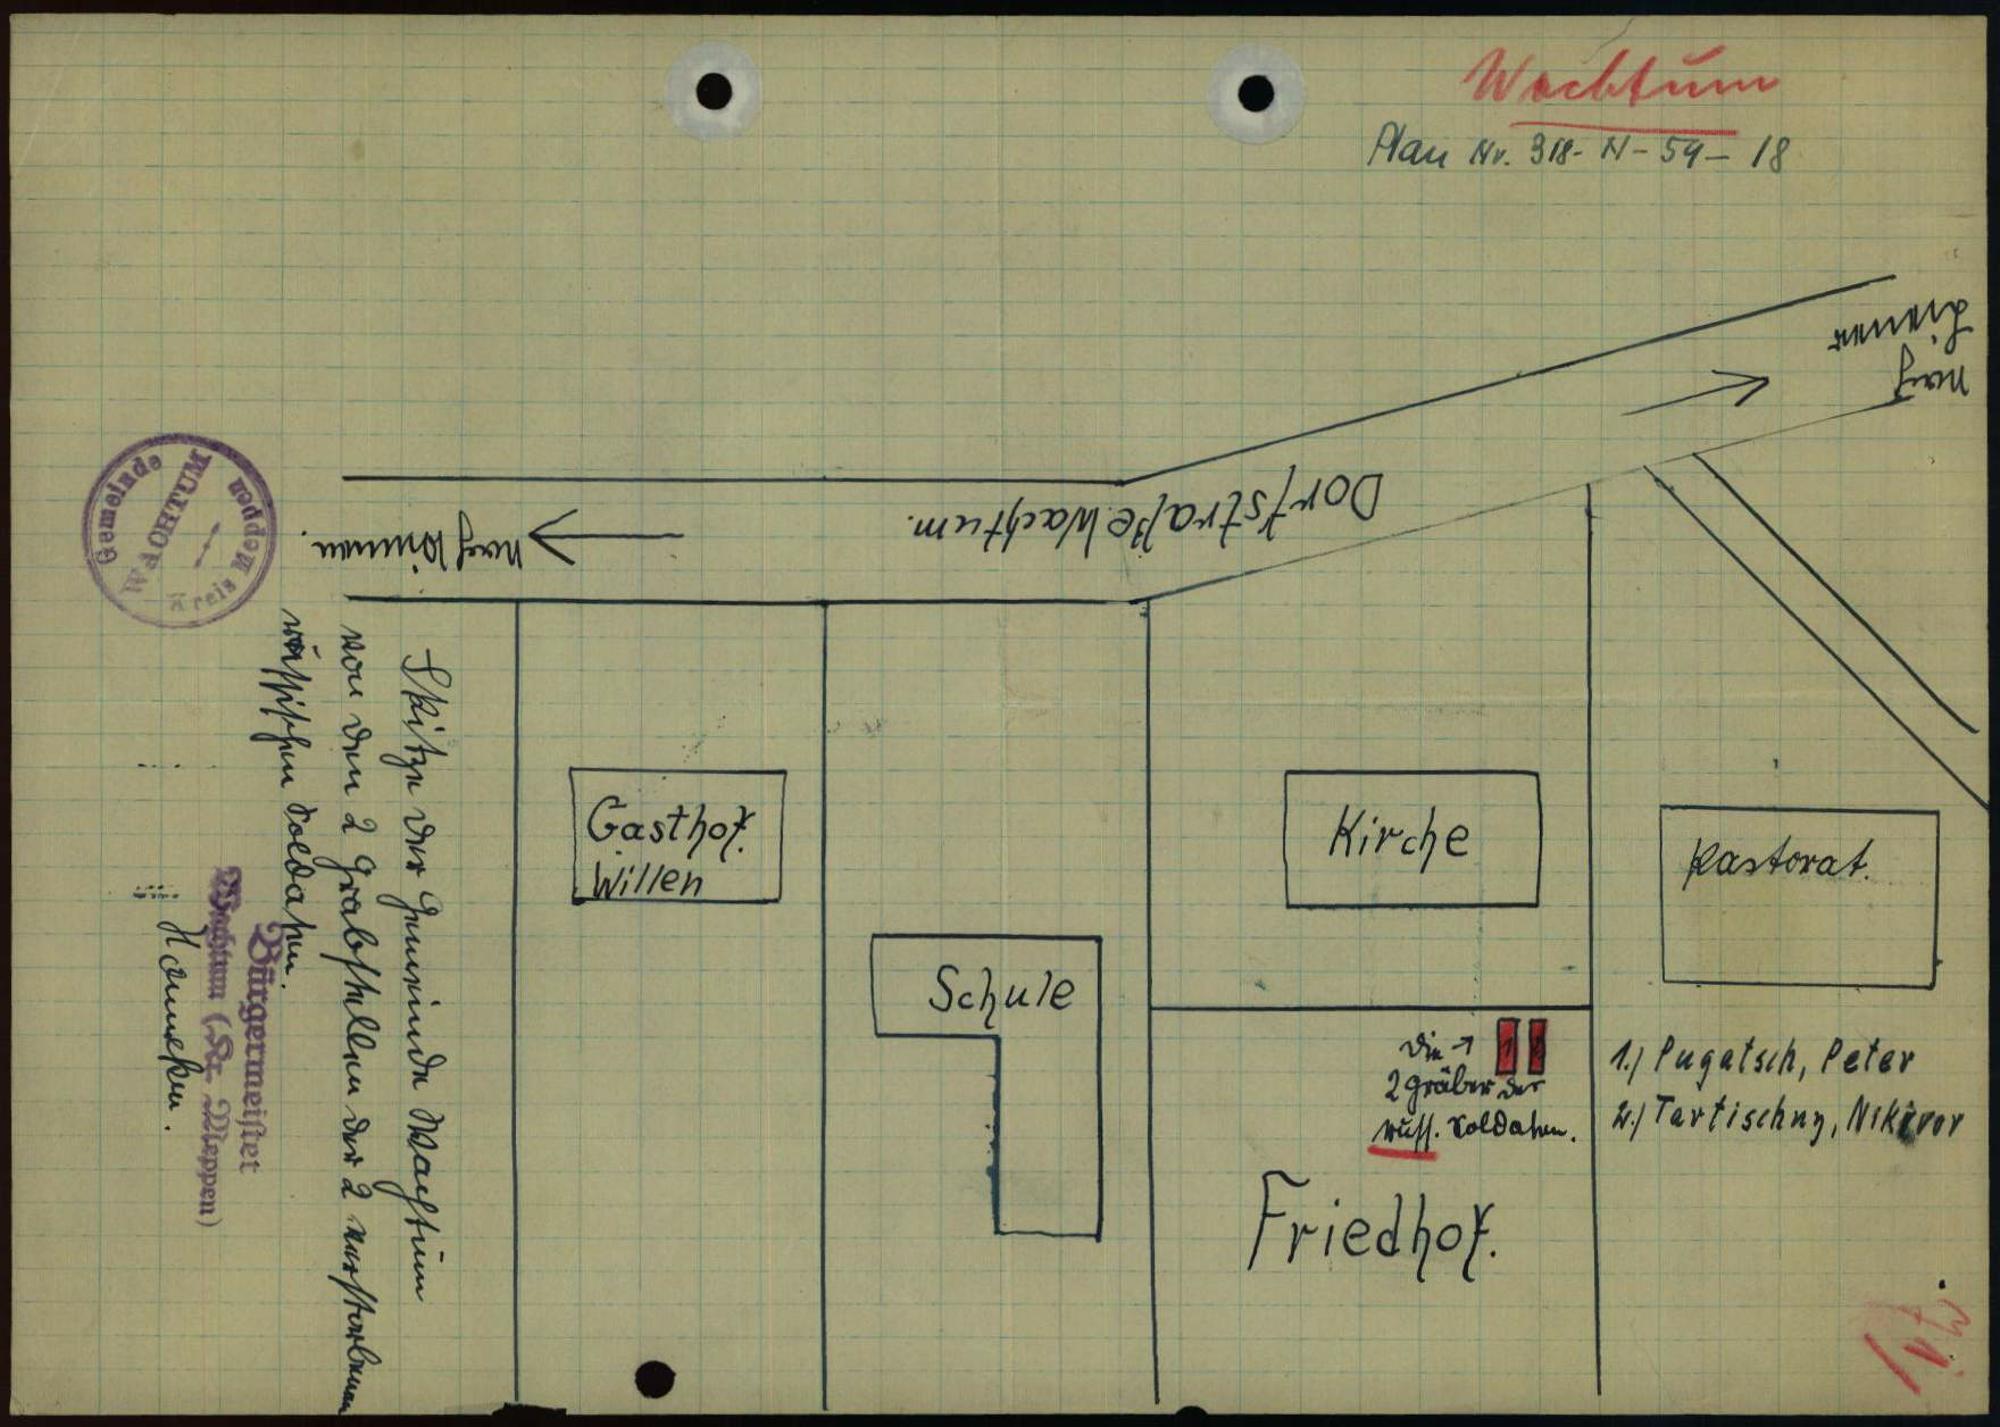 Wachtum
Plan Nr. 318-N-54-18
nach
Liener
Dorfstraße Wachtum.
nach Winum.
Gemeinde
WACHTUM
Kreis Meppen
Skitze der Gemeinde Wachtum
von den 2 Grabstellen der 2 verstorbenen
russischen Soldaten.
Bürgermeister
Wachtum (Kr. Meppen)
Gasthof.
Willen
Schule
Kirche
Pastorat.
Die → 1 2
2 Gräber der
russ. Soldaten.
Friedhof.
1.) Pugatsch, Peter
2.) Tartischny, Nikivor